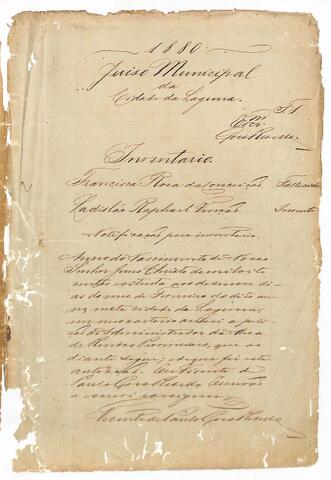 1880
Juiso Municipal
da
Cidade da Laguna.
Fl 1
Escr.
Goes Rebello
Inventario.
Francisca Rosa da Conceição Fallecida
Ladislão Raphael Invente
Notificação para inventario.
Anno do Nascimento de Nosso
Senhor Jesus Christo de mil oito
centos e oitenta, aos
dias do mez de Fevereiro do dito an
no, nesta cidade da Laguna,
em meo cartorio autoei a peti
do Administrador da Mesa
de Rendas Provinciaes, que ao
diante segue; do que fiz esta
autoação. Eu Vicente de
Paulo Goes Rebello Escrivão
o escrevi e assigno
Vicente de Paulo Goes Rebello